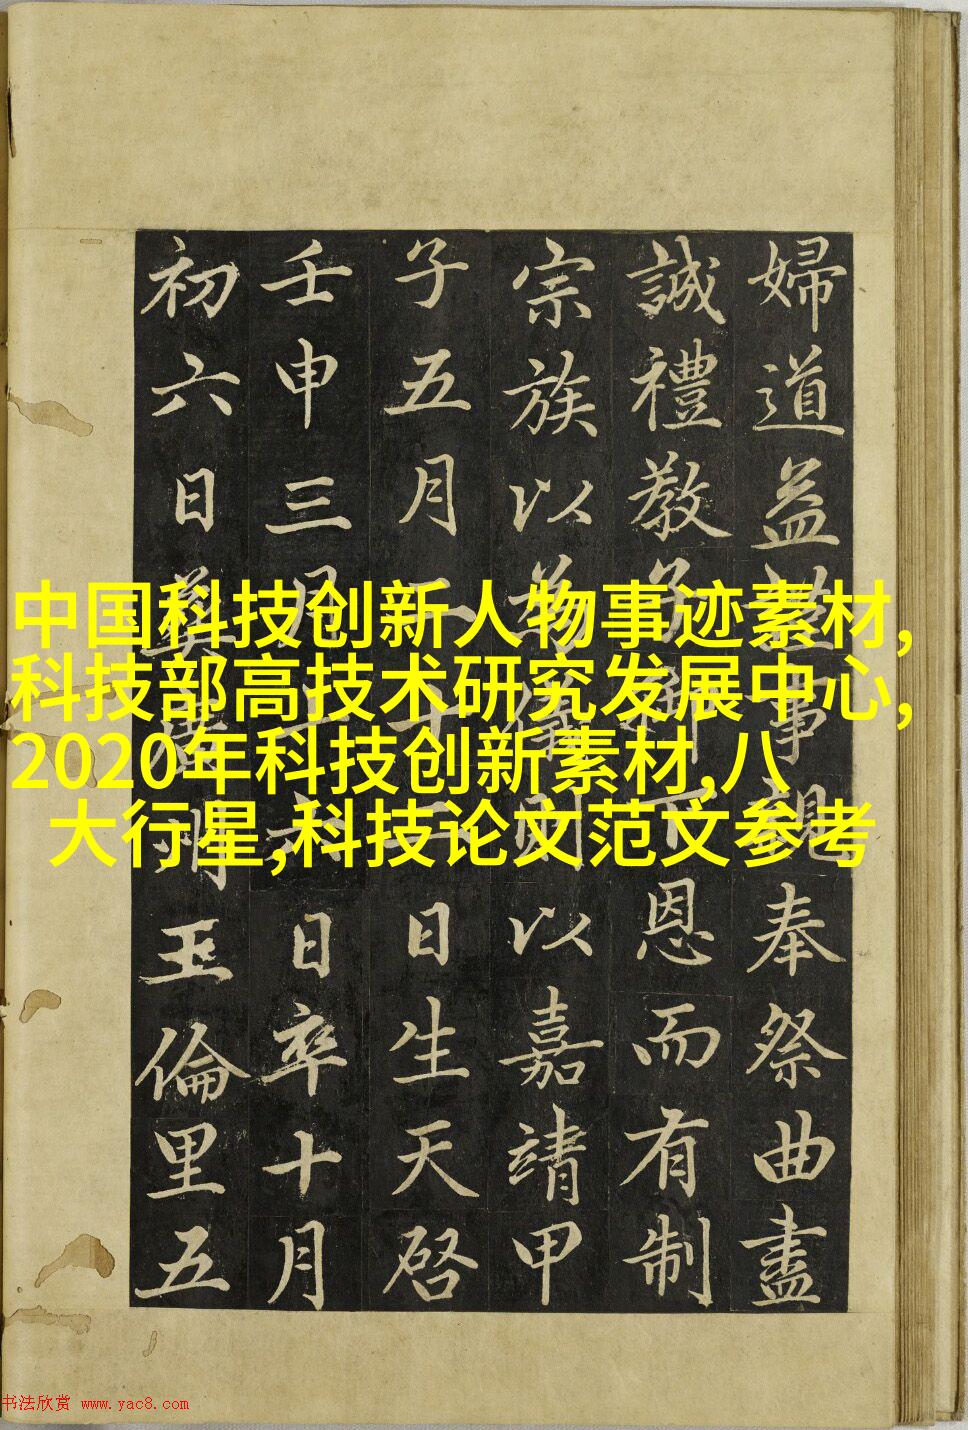 中国科技创新人物事迹素材,
科技部高技术研究发展中心,
2020年科技创新素材,八
大行星,科技论文范文参考
婦道益謹事親奉祭曲盡
誠禮教子御下恩而有制
宗族以為儀則以嘉靖甲
子五月二十日生天啓
壬申三月十六日卒十月
初六日葬玉倫里五
书法欣赏 www.yac8.com